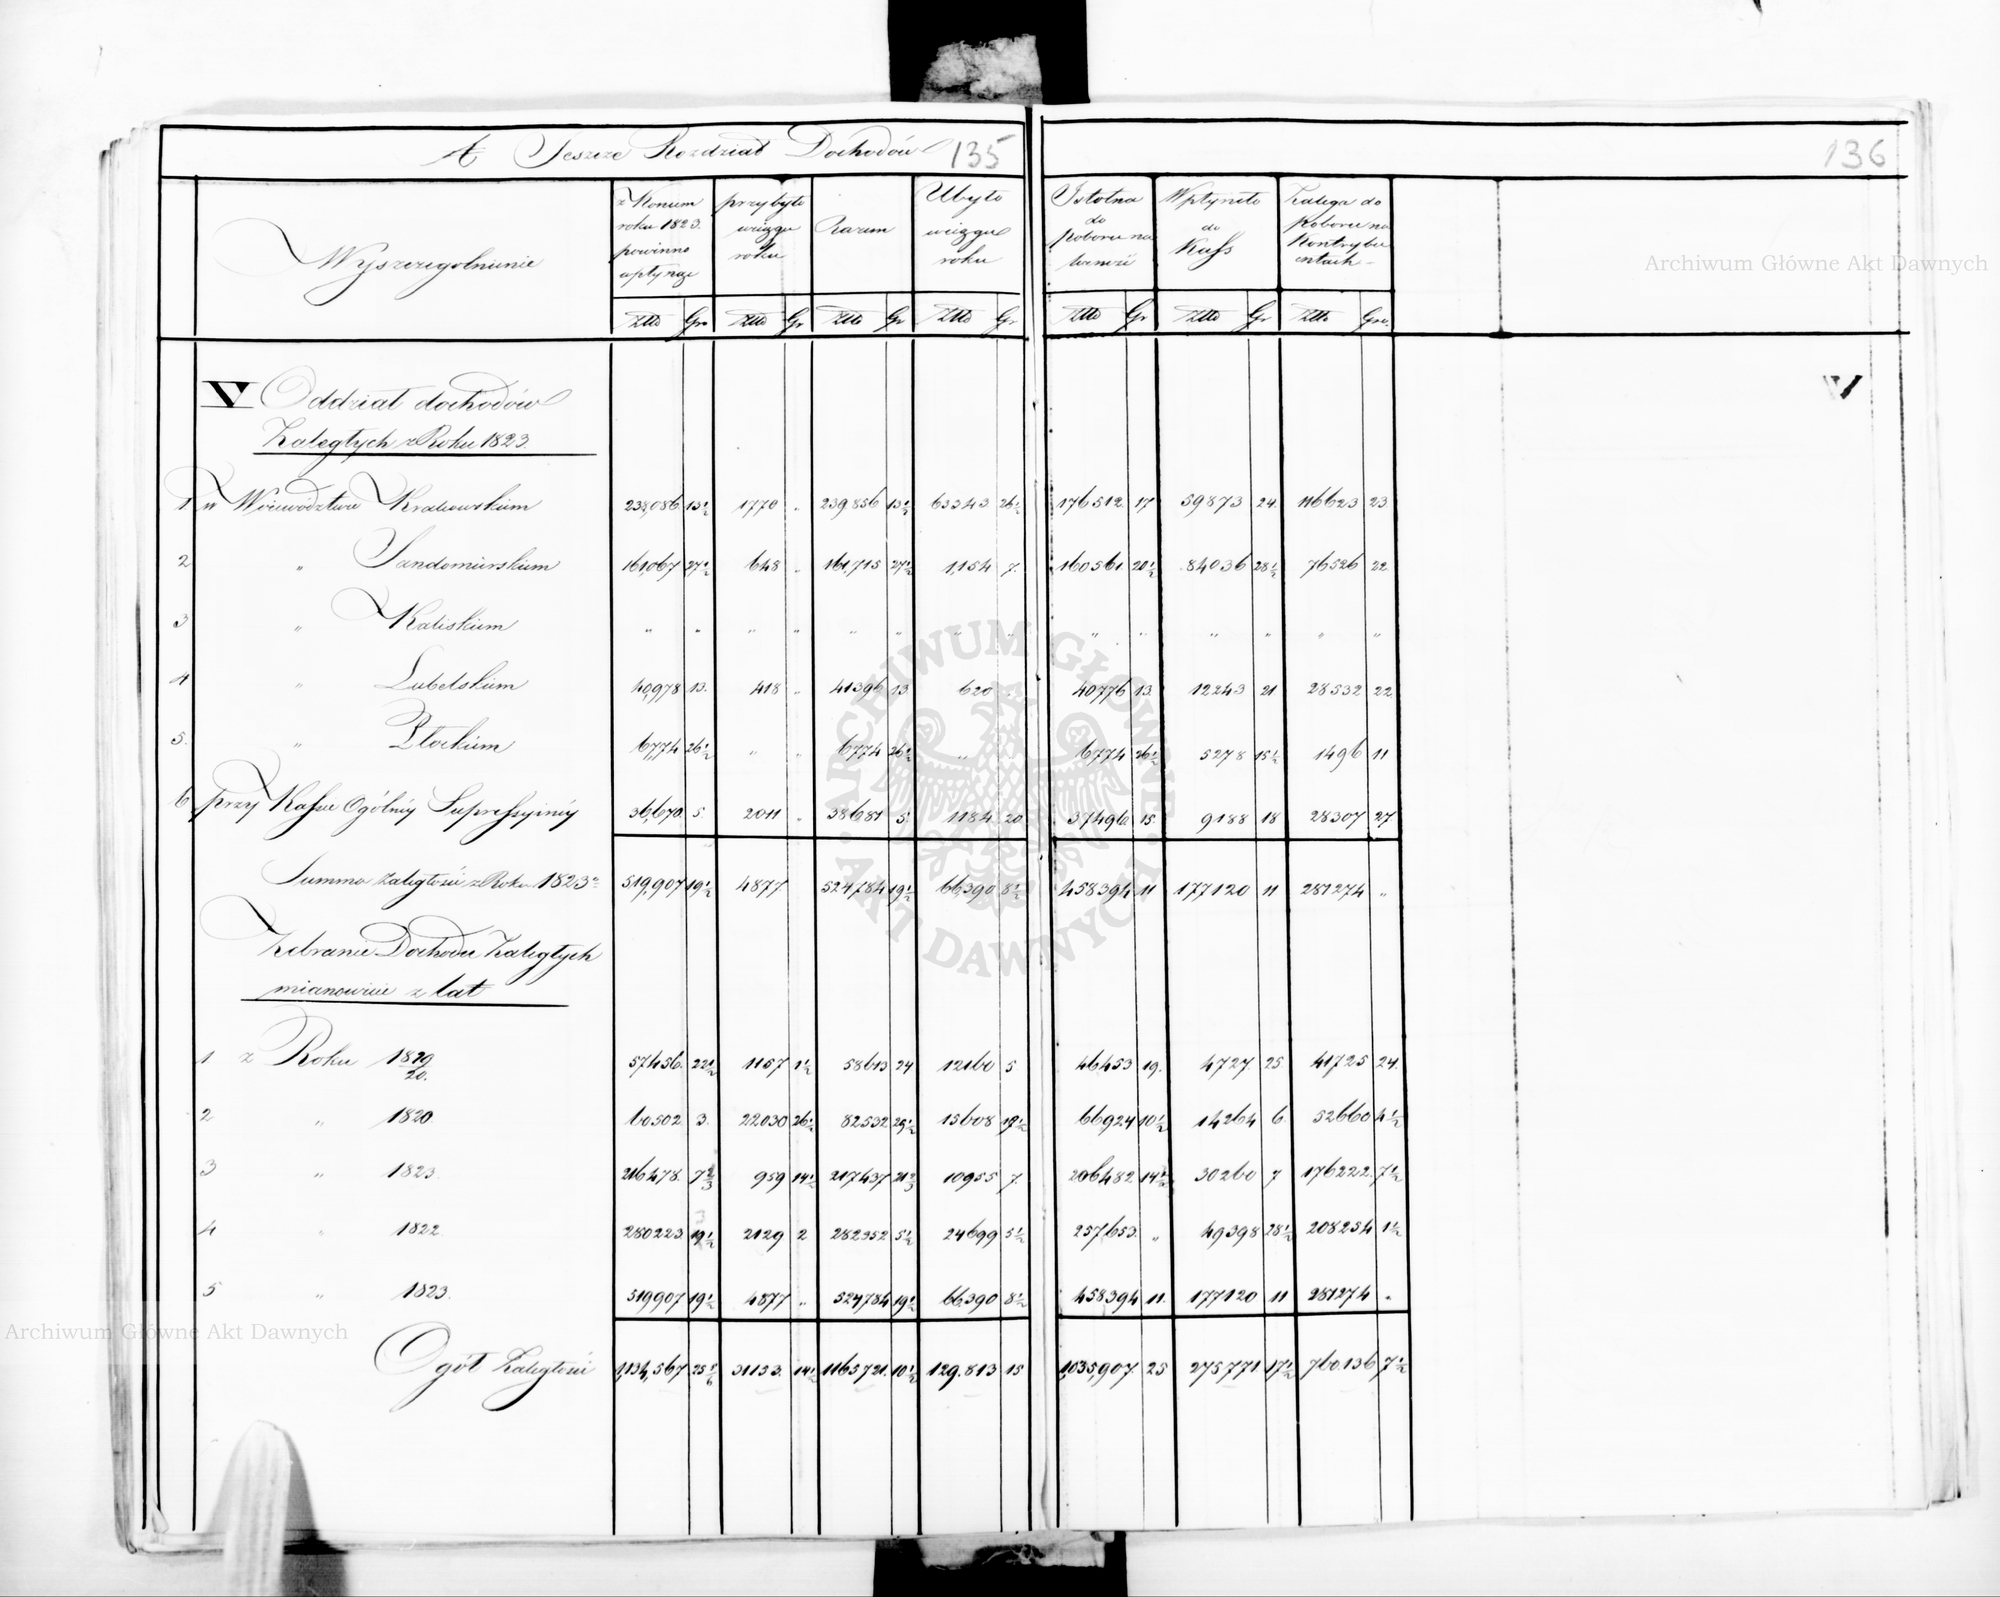 A Jeszcze Rozdział Dochodów 135
136
Wyszczególnienie
z Koncem roku 1823. powinno wpłynąć
przybyło wciągu roku
Razem
Ubyło wciągu roku
Istotna do poboru należność
Wpłynęło do Kass
Zalega do poboru na Kontrybuentach
Złto Gr. Złto Gr Złto Gr Złto Gr Złto Gr Złto Gr Złto Gro.
V Oddział dochodów V
Zaległych z Roku 1823.
1 w Województwie Krakowskiem 238,086. 13½ 1770 „ 239856 13½ 63343 26½ 176512. 17 59873 24. 116623 23
2 „ Sandomirskiem 161,067 27½ 648 „ 161,715 27½ 1,154 7. 160561 20½ 84036 28½ 76526 22
3 „ Kaliskiem „ „ „ „ „ „ „ „ „ „ „ „ „ „
4 „ Lubelskiem 40,978 13. 418 „ 41396 13 620 „ 40776 13. 12243 21 28532 22
5. „ Płockiem 6,774 26½ „ „ 6774 26½ „ „ 6774 26½ 5278 15½ 1496 11
6 przy Kassie Ogólney Supressyiney 36,670. 5. 2011 „ 38681 5. 1184 20 37496 15. 9188 18 28307 27
Summa Zaległości z Roku 1823. 519,907 19½ 4877 524784 19½ 66,390 8½ 458394 11 177120 11 281274 „
Zebranie Dochodu Zaległych
mianowicie z lat
1 z Roku 1819/20. 57456. 22½ 1157 1½ 58613 24 12160 5 46453 19. 4727. 25. 41725 24.
2 „ 1820 60502 3. 22030 26½ 82532 29½ 15608 19½ 66924 10½ 14264 6. 52660 4½
3 „ 1823. 216478. 7⅔ 959 14½ 217437 21⅔ 10955 7. 206482. 14½ 30260 7 176222. 7½
4 „ 1822 280223 19½ 2129 2 282352 5½ 24699 5½ 257653. „ 49398 28½ 208254 1½
5 „ 1823. 519907 19½ 4877 „ 524784 19½ 66,390 8½ 458394 11. 177120 11 281274 „
Ogół Zaległości 1,134,567 25⅚ 31153. 14½ 1165721. 10½ 129.813 15 1,035,907. 25 275771 17½ 760136 7½
Archiwum Główne Akt Dawnych
Archiwum Główne Akt Dawnych
ARCHIWUM GŁÓWNE AKT DAWNYCH